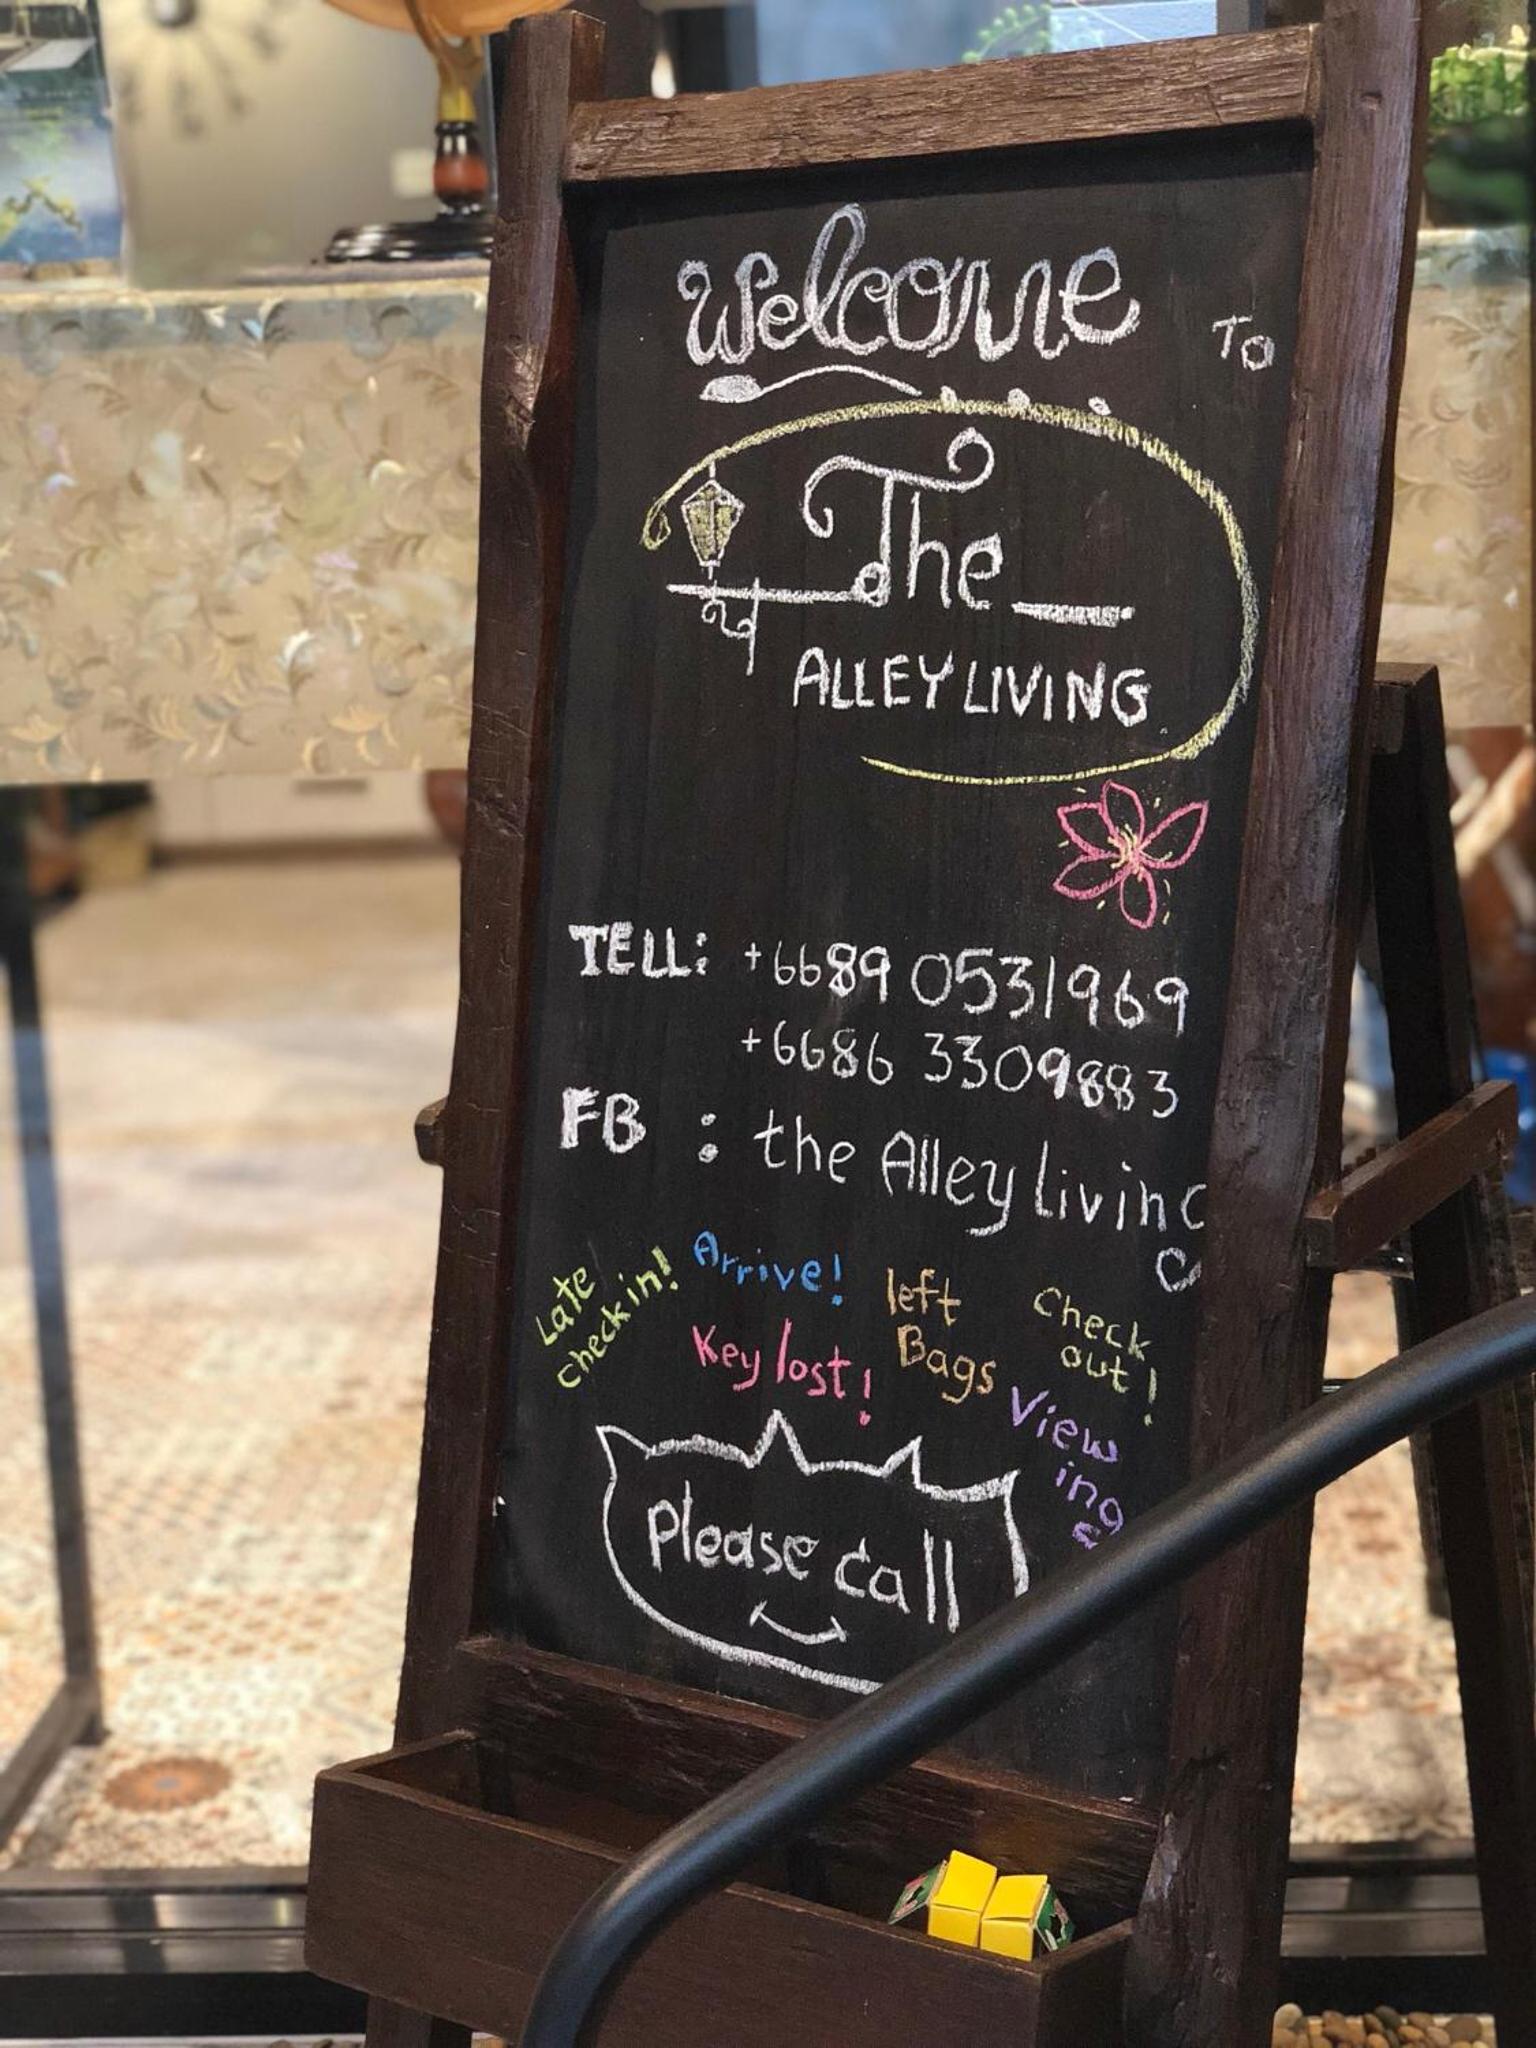 Welcome To
The
ALLEY LIVING
TELL: +6689 0531969
+6686 3309883
FB : the Alley Living
Late
check in!
Arrive!
Key lost!
left
Bags
Check
out!
View
ing
Please call